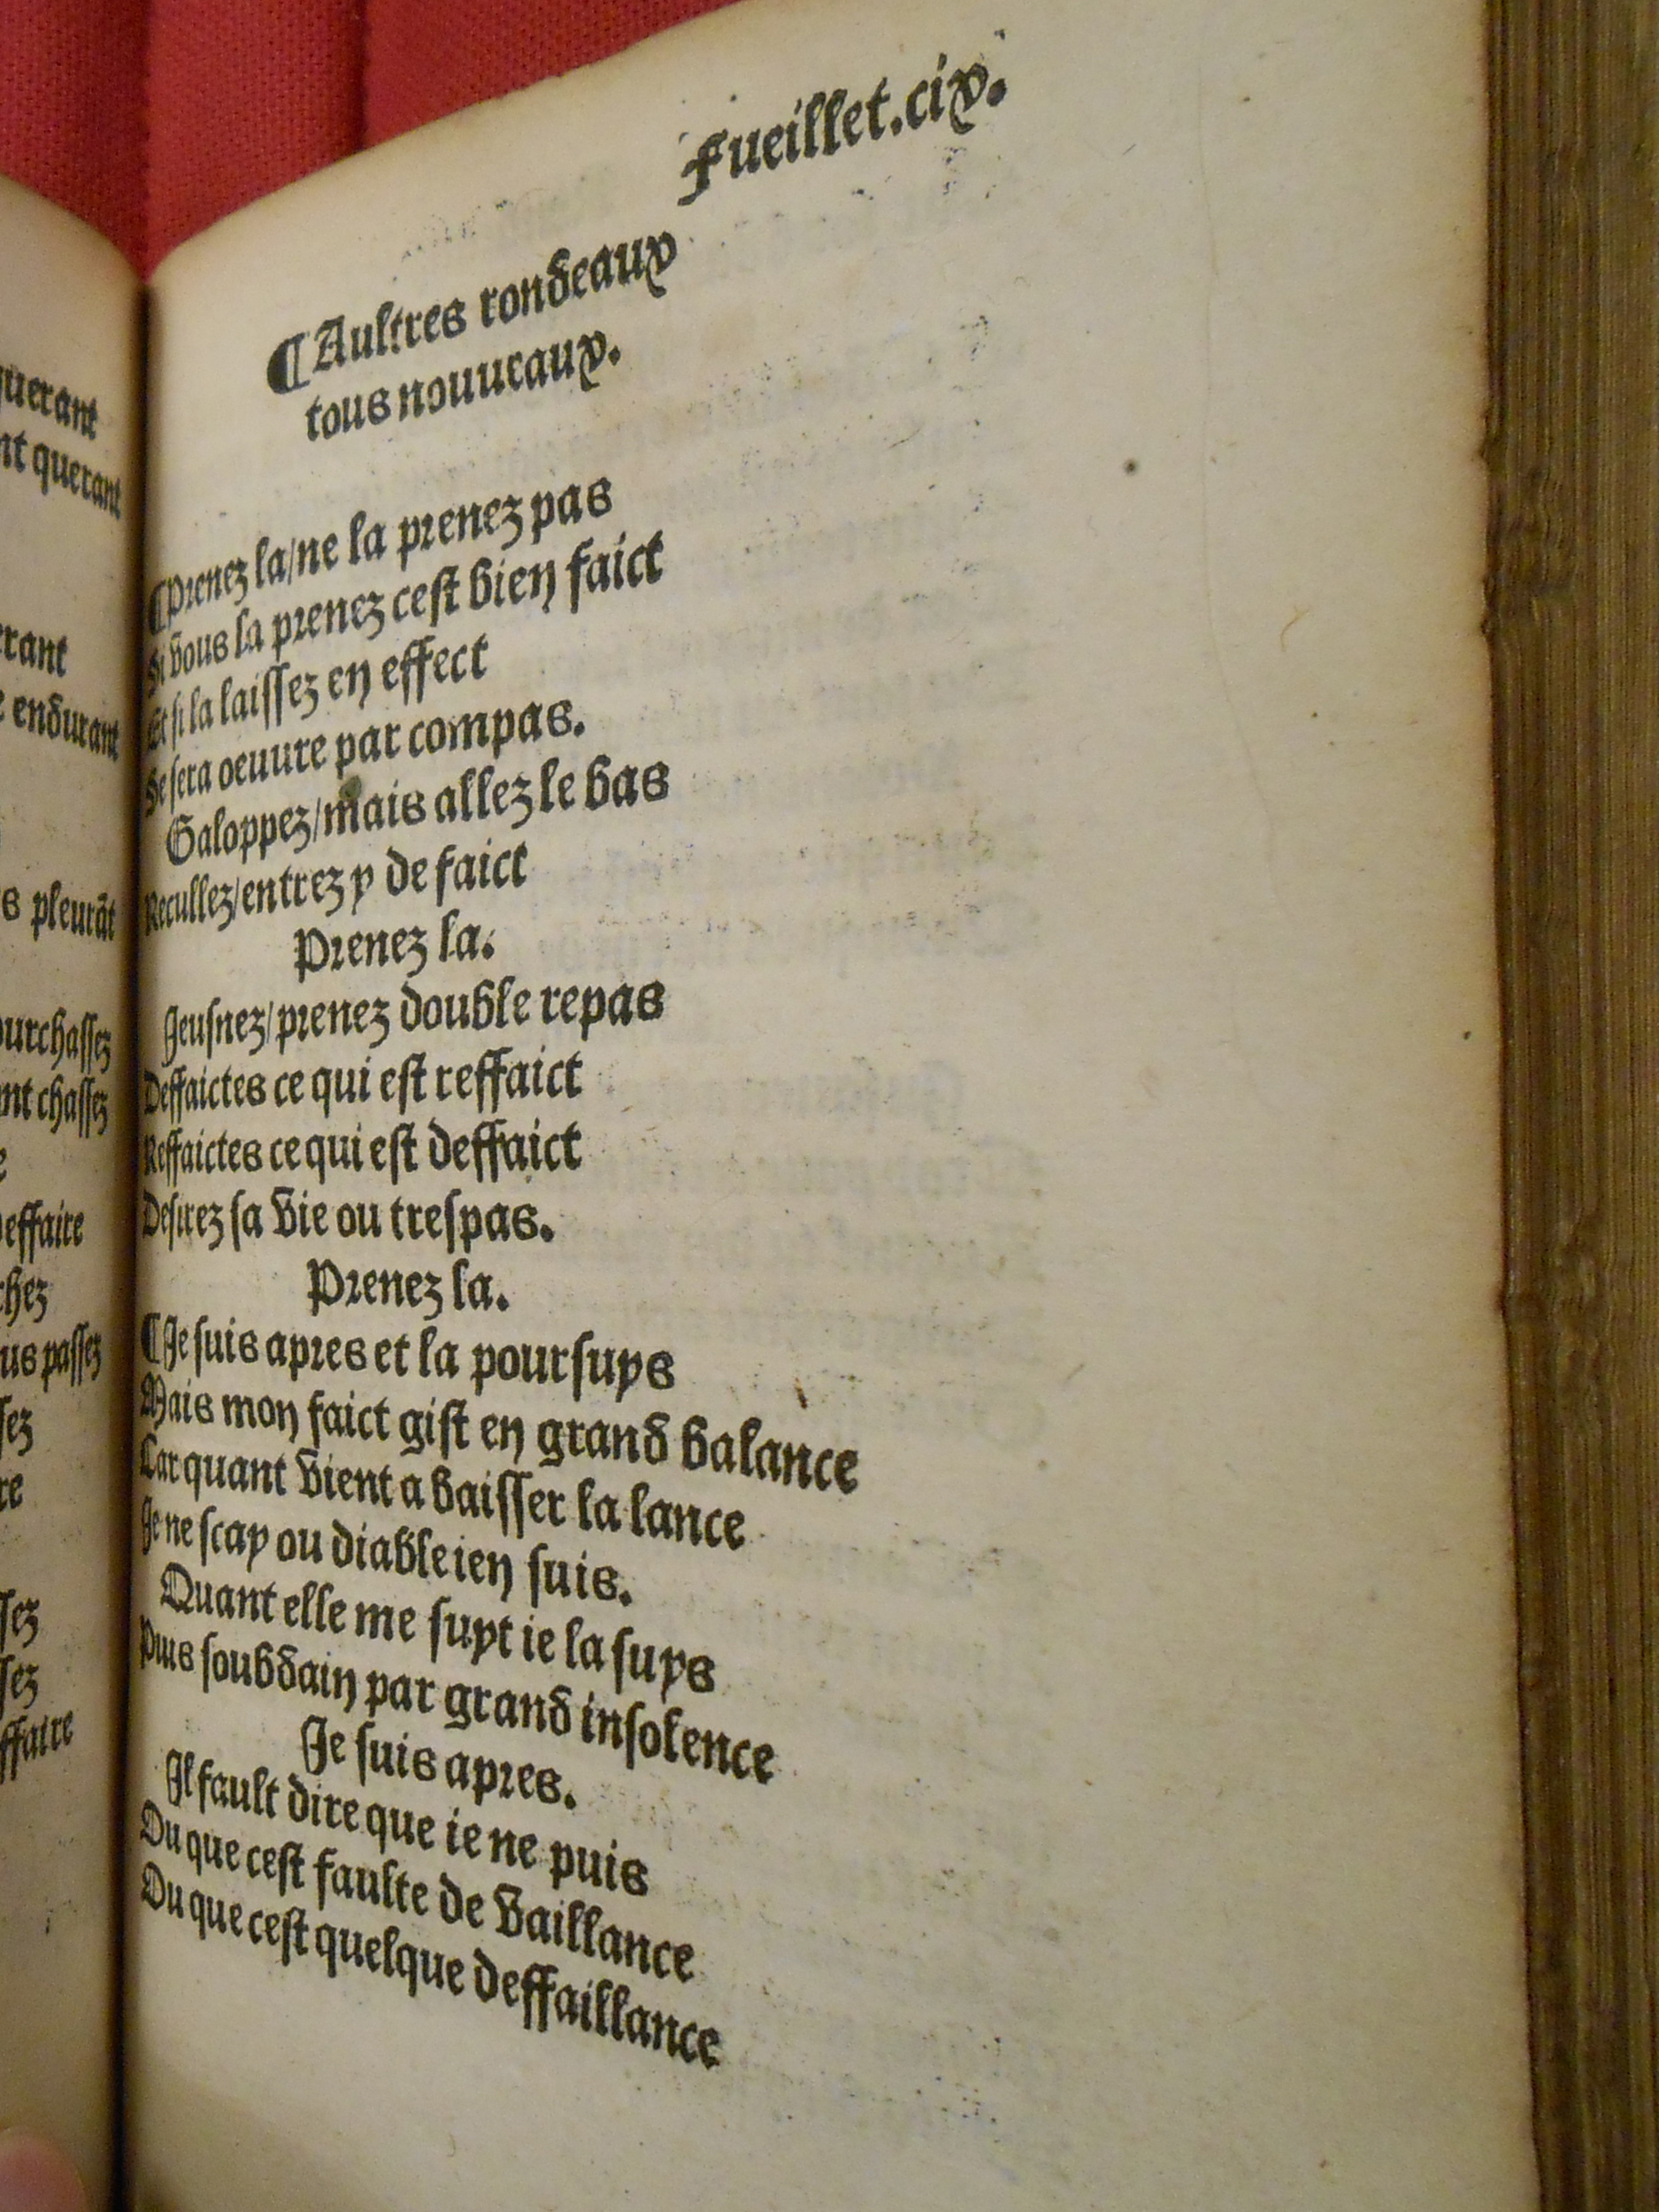 querant
nt querant
rant
e endurant
s pleurāt
ourchassez
nt chassez
effaire
chez
us passez
sez
re
sez
sez
ffaire
Fueillet.cix.
¶Aultres rondeaux
tous nouueaux.
¶Prenez la/ne la prenez pas
Si vous la prenez cest bien faict
Et si la laissez en effect
Se sera oeuure par compas.
Galoppez/mais allez le bas
Recullez/entrez y de faict
Prenez la.
Jeusnez/prenez double repas
Deffaictes ce qui est reffaict
Reffaictes ce qui est deffaict
Desirez sa vie ou trespas.
Prenez la.
¶Je suis apres et la poursuys
Mais mon faict gist en grand balance
Car quant vient a baisser la lance
Je ne scay ou diable ien suis.
Quant elle me suyt ie la suys
Puis soubdain par grand insolence
Je suis apres.
Il fault dire que ie ne puis
Ou que cest faulte de vaillance
Ou que cest quelque deffaillance